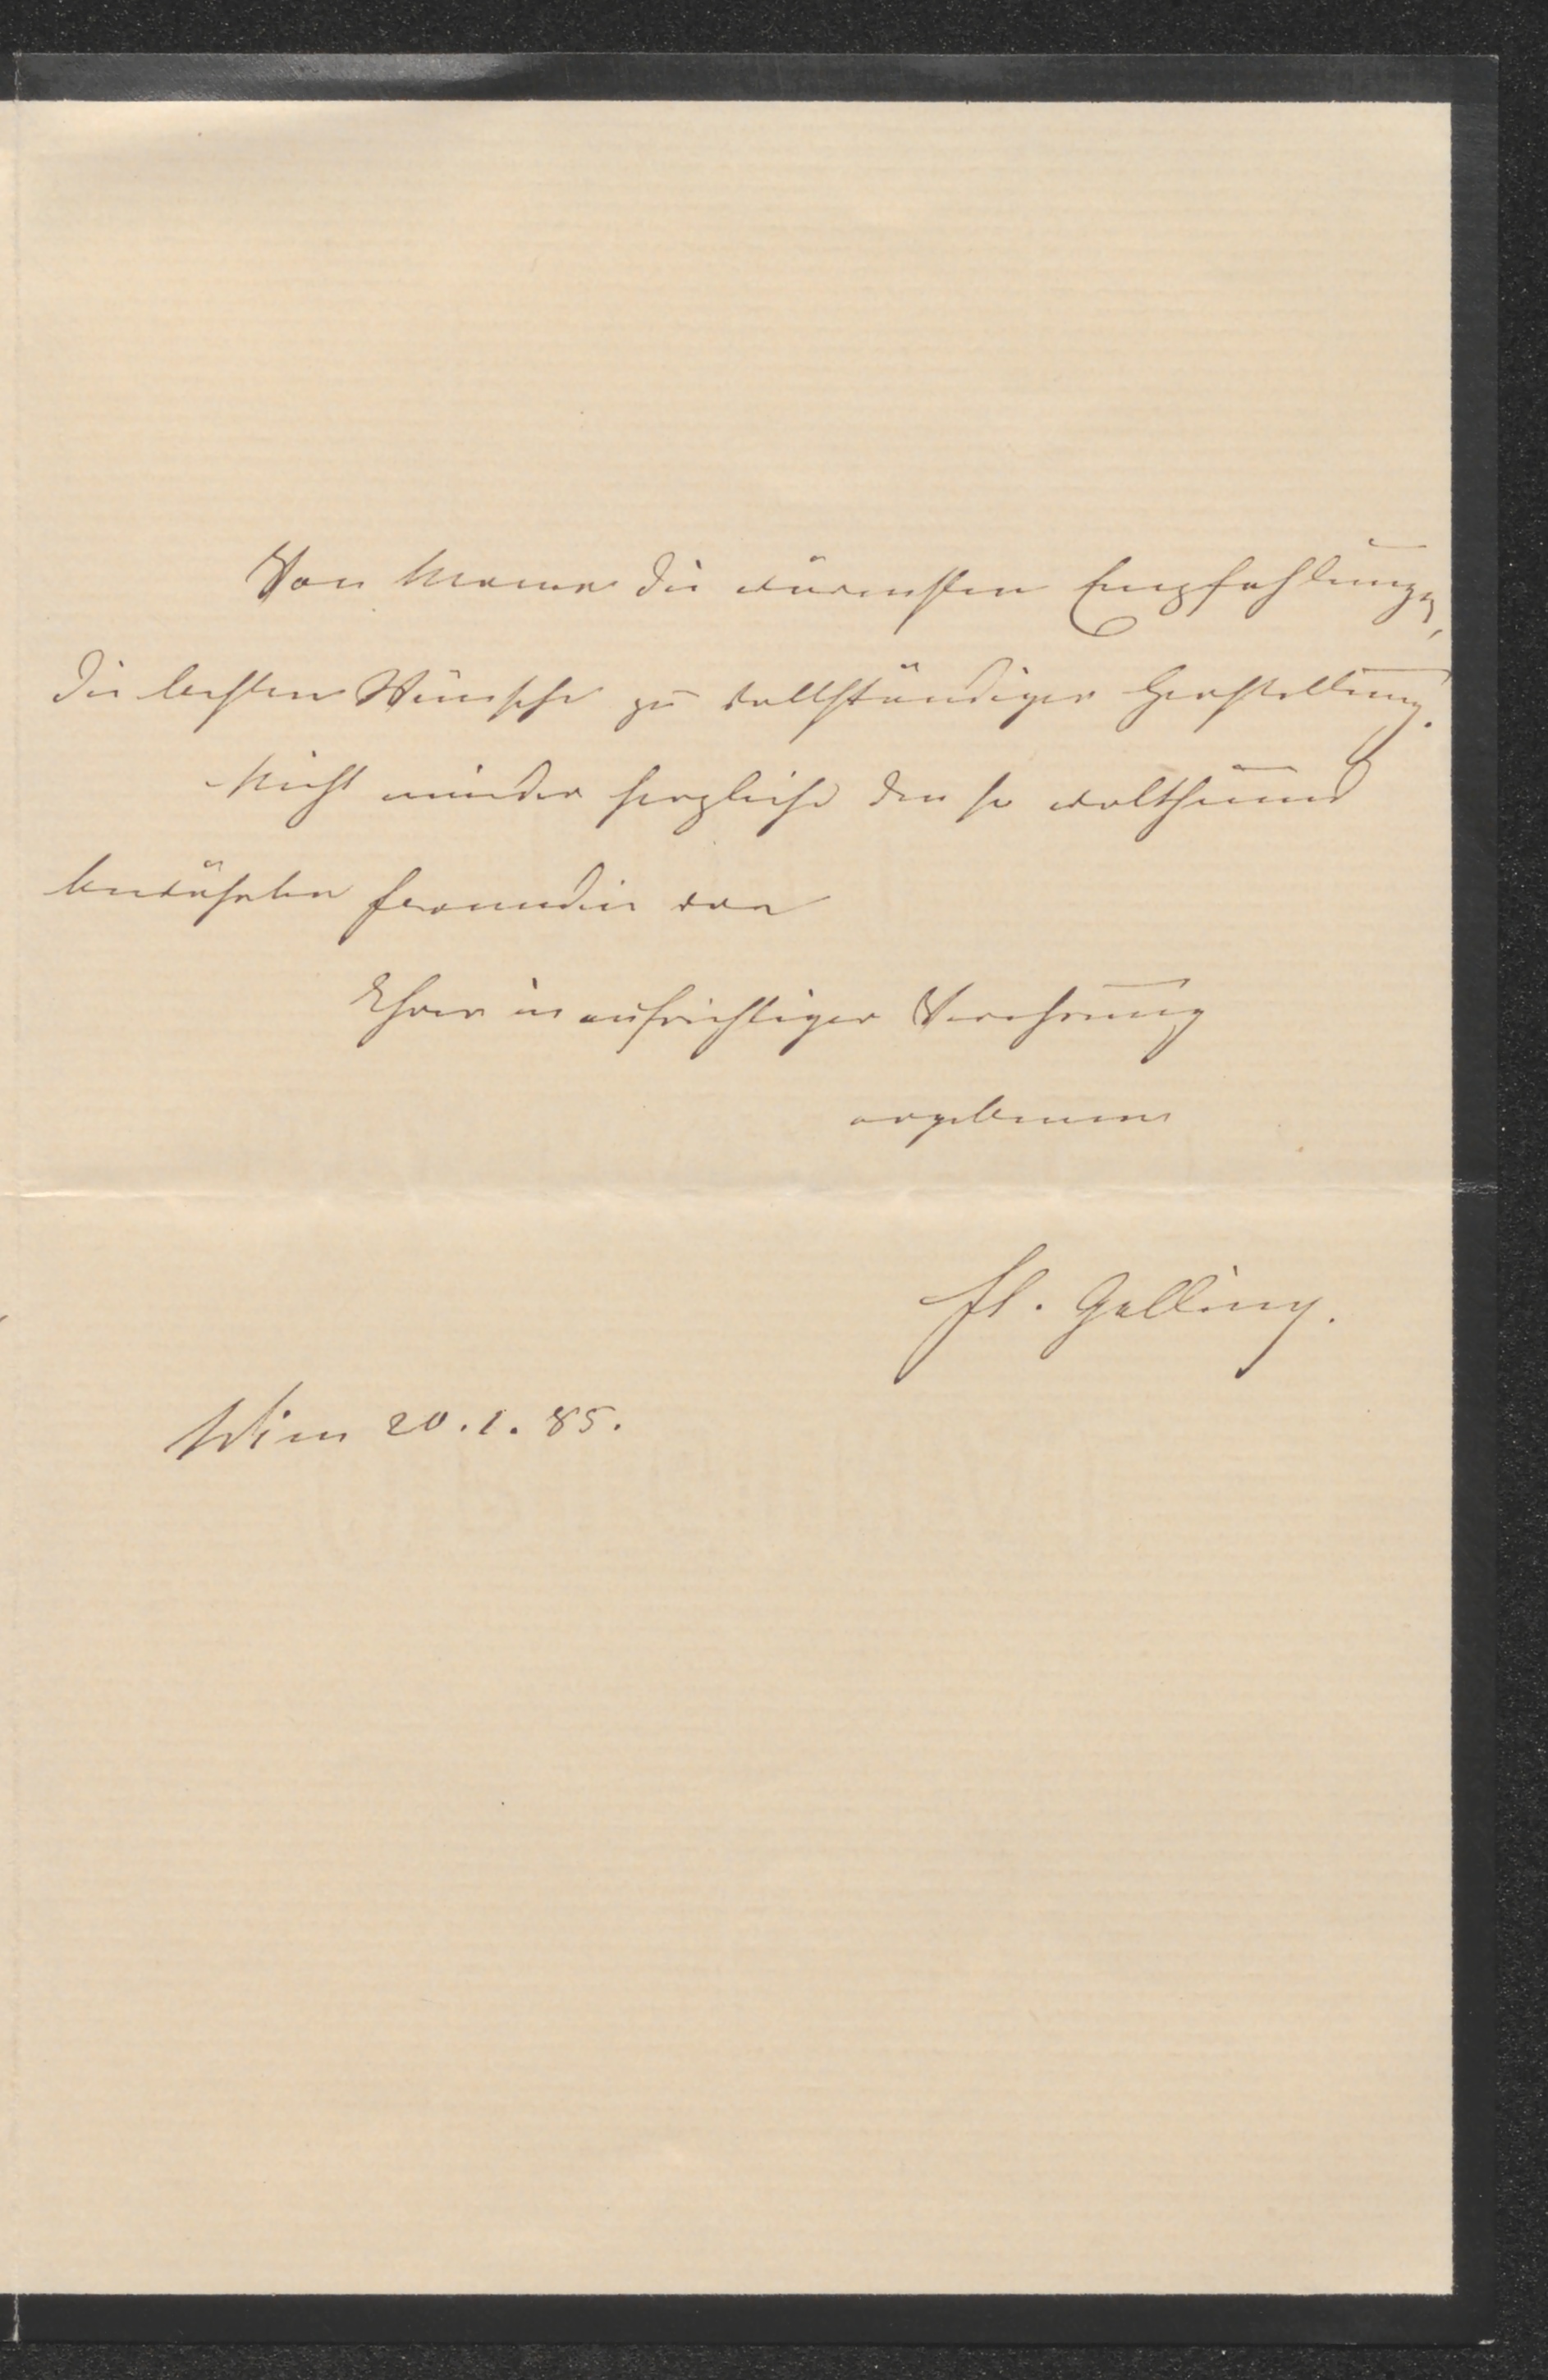 Von Mama die wärmsten Empfehlungen,
die besten Wünsche zu vollständiger Herstellung.
Nicht minder herzliche den so wolthuend
bewährten Freunden von
Ihrer in aufrichtiger Verehrung
ergebenen
Fl. Galliny.
Wien 20.1.85.